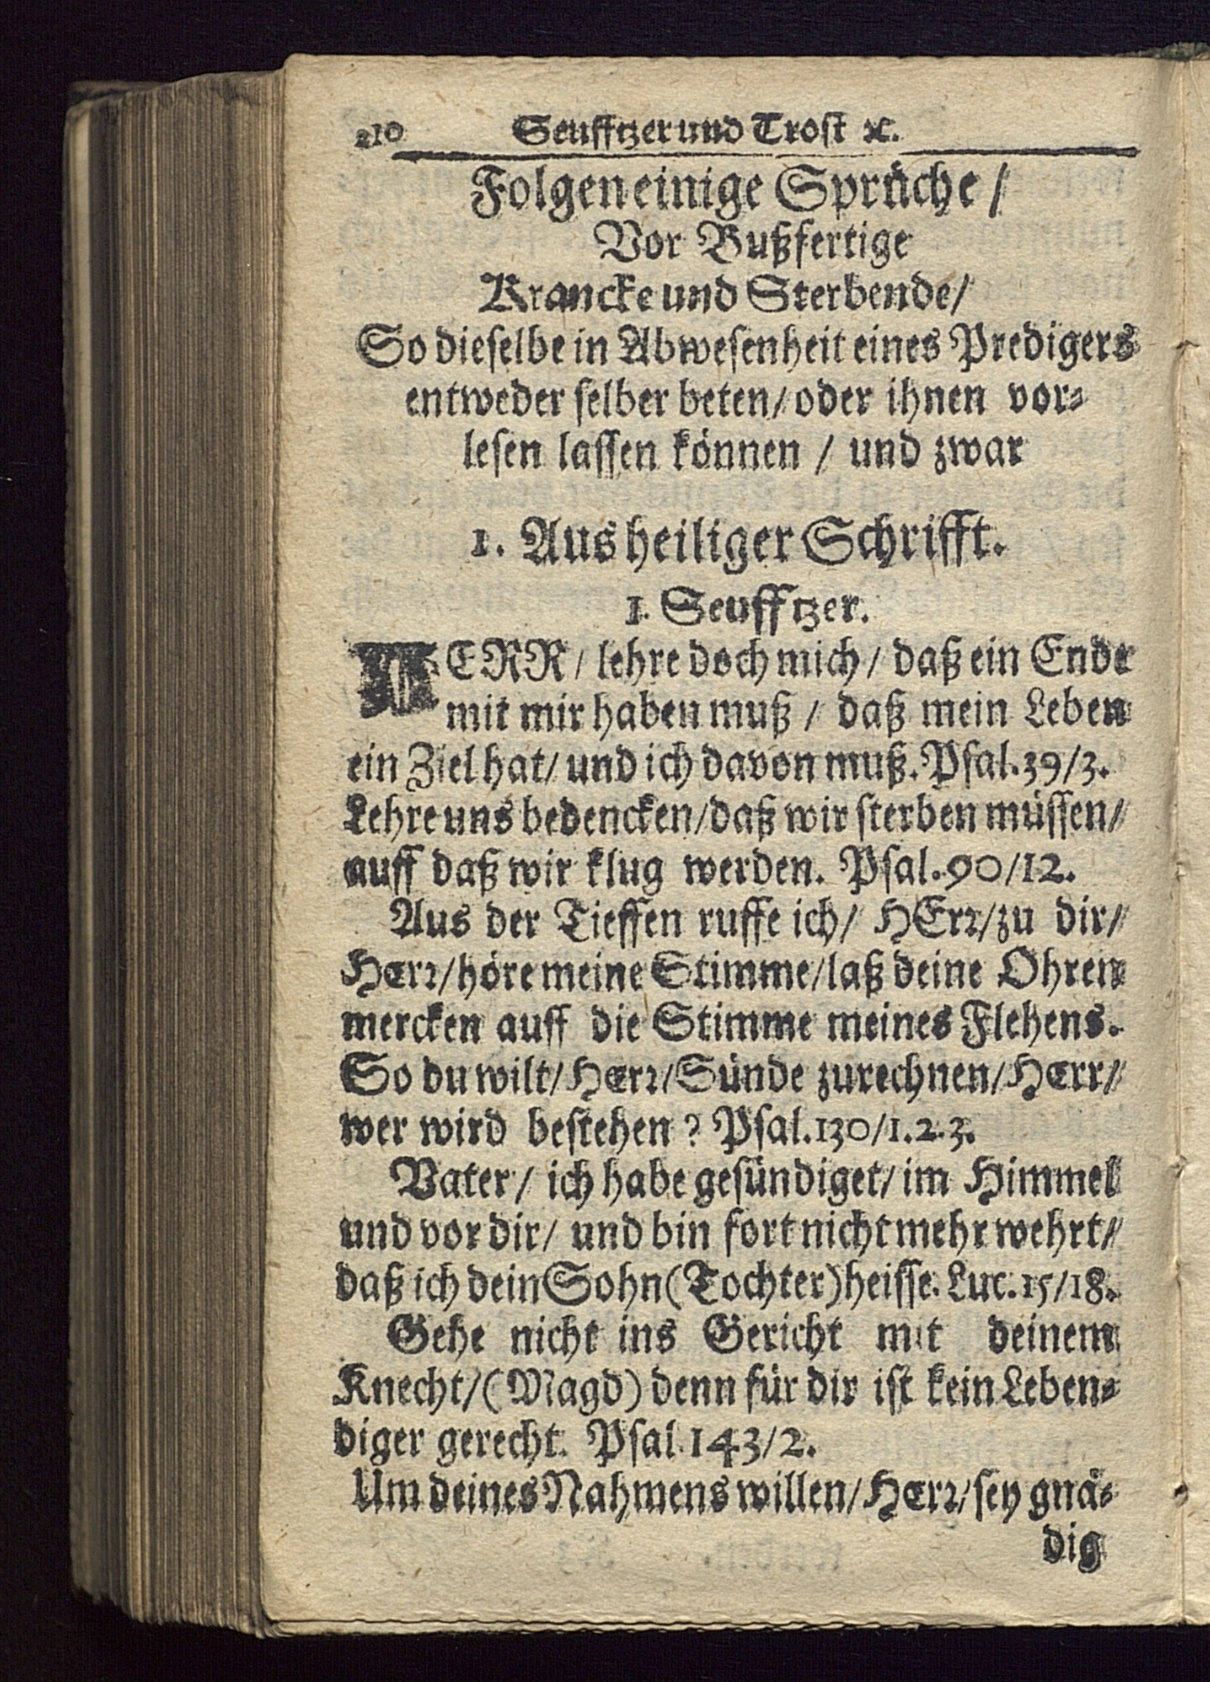 210 Seufftzer und Trost ꝛc.
Folgen einige Sprüche /
Vor Bußfertige
Krancke und Sterbende/
So dieselbe in Abwesenheit eines Predigers
entweder selber beten/ oder ihnen vor-
lesen lassen können / und zwar
1. Aus heiliger Schrifft.
1. Seufftzer.
HERR / lehre doch mich / daß ein Ende
mit mir haben muß / daß mein Leben
ein Ziel hat/ und ich davon muß. Psal. 39/3.
Lehre uns bedencken/ daß wir sterben müssen/
auff daß wir klug werden. Psal. 90/12.
Aus der Tieffen ruffe ich/ HErr/ zu dir/
Herr/ höre meine Stimme/ laß deine Ohren
mercken auff die Stimme meines Flehens.
So du wilt/ Herr/ Sünde zurechnen/ Herr/
wer wird bestehen? Psal. 130/1.2.3.
Vater / ich habe gesündiget/ im Himmel
und vor dir/ und bin fort nicht mehr wehrt/
daß ich dein Sohn (Tochter) heisse. Luc. 15/18.
Gehe nicht ins Gericht mit deinem
Knecht/ (Magd) denn für dir ist kein Leben-
diger gerecht. Psal. 143/2.
Um deines Nahmens willen/ Herr/ sey gnä-
dig